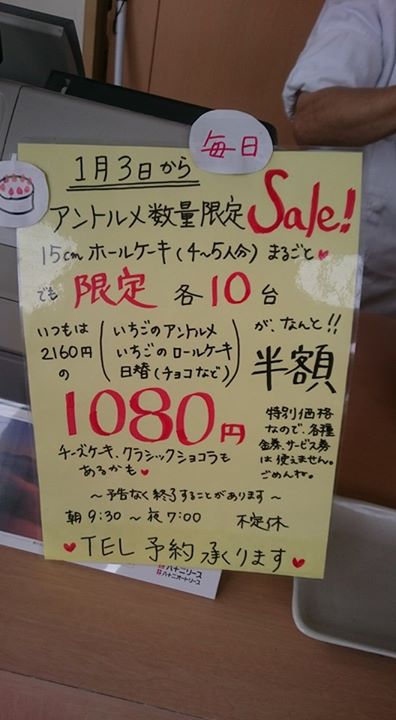 毎日
1月3日から
アントルメ数量限定 Sale!
15cm ホールケーキ(4～5人分) まるごと♥
でも 限定 各10台
いつもは 2160円の
(いちごのアントルメ
いちごのロールケーキ
日替(チョコなど))
が、なんと!!
半額
1080円
チーズケーキ、クラシックショコラも
あるかも♥
特別価格
なので、各種
金券、サービス券
は使えません。
ごめんね。
～予告なく終了することがあります～
朝 9:30 ～ 夜 7:00 不定休
♥ TEL 予約承ります♥
八十二リース
八十二オートリース